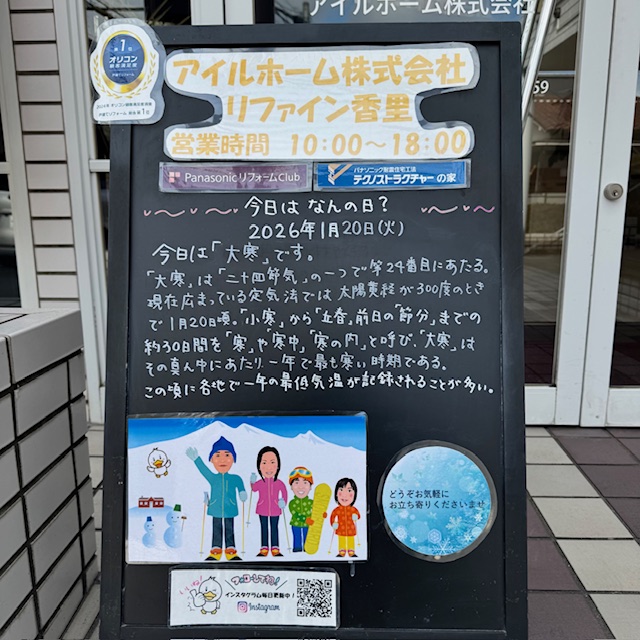 アイルホーム株式会社
59
第1位
オリコン
顧客満足度
戸建てリフォーム
アイルホーム株式会社
リファイン香里
営業時間 10:00～18:00
Panasonic リフォーム Club
パナソニック耐震住宅工法
テクノストラクチャーの家
今日は なんの日?
2026年1月20日(火)
今日は「大寒」です。
「大寒」は「二十四節気」の一つで第24番目にあたる。
現在広まっている定気法では太陽黄経が300度のとき
で1月20日頃。「小寒」から「立春」前日の「節分」までの
約30日間を「寒」や「寒中」「寒の内」と呼び、「大寒」は
その真ん中にあたり一年で最も寒い時期である。
この頃に各地で一年の最低気温が記録されることが多い。
どうぞお気軽に
お立ち寄りくださいませ
いいね!
フォローしてね!
インスタグラム毎日更新中!
Instagram